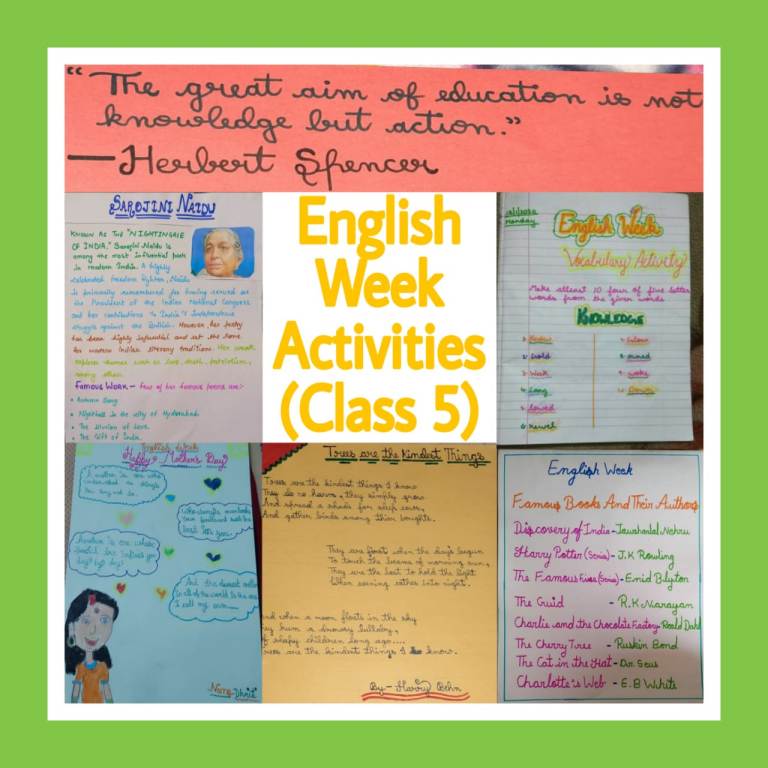 "The great aim of education is not
knowledge but action."
—Herbert Spencer
SAROJINI NAIDU
KNOWN AS THE "NIGHTINGALE
OF INDIA." Sarojini Naidu is
among the most influential poets
in modern India. A highly
celebrated freedom fighter, Naidu
is primarily remembered for having served as
the President of the Indian National Congress
and her contributions to India's Independence
struggle against the British. However, her poetry
has been highly influential and set the tone
for modern Indian literary tradition. Her work
explores themes such as love, death, patriotism,
among others.
FAMOUS WORK - Few of her famous poems are:-
Autumn Song
Nightfall in the city of Hyderabad
The Illusion of Love
The Gift of India
English
Week
Activities
(Class 5)
Monday
English Week
Vocabulary Activity
Make atleast 10 four of five letter
words from the given words
KNOWLEDGE
2. Gold
3. Weak
4. Long
5. Lowed
6. Newel
English Week
Happy Mother's Day
A mother is one who
Name-Dhrit
Trees are the Kindest Things
Trees are the kindest things I know
They do no harm, they simply grow
And spread a shade for sleepy cows,
And gather birds among their boughts.
They are first when the day's begun
To touch the beams of morning sun,
They are the last to hold the light
When evening
And when a moon floats in the sky
They hum a drowsy lullaby,
of sleepy children long ago....
Trees are the kindest things I know.
By- Harry Behn
English Week
Famous Books And Their Authors
Discovery of India - Jawaharlal Nehru
Harry Potter (Series) - J.K Rowling
The Famous Five (Series) - Enid Blyton
The Guid - R.K Narayan
Charlie and the Chocolate Factory - Roald Dahl
The Cherry Tree - Ruskin Bond
The Cat in the Hat - Dr. Seus
Charlotte's Web - E.B White